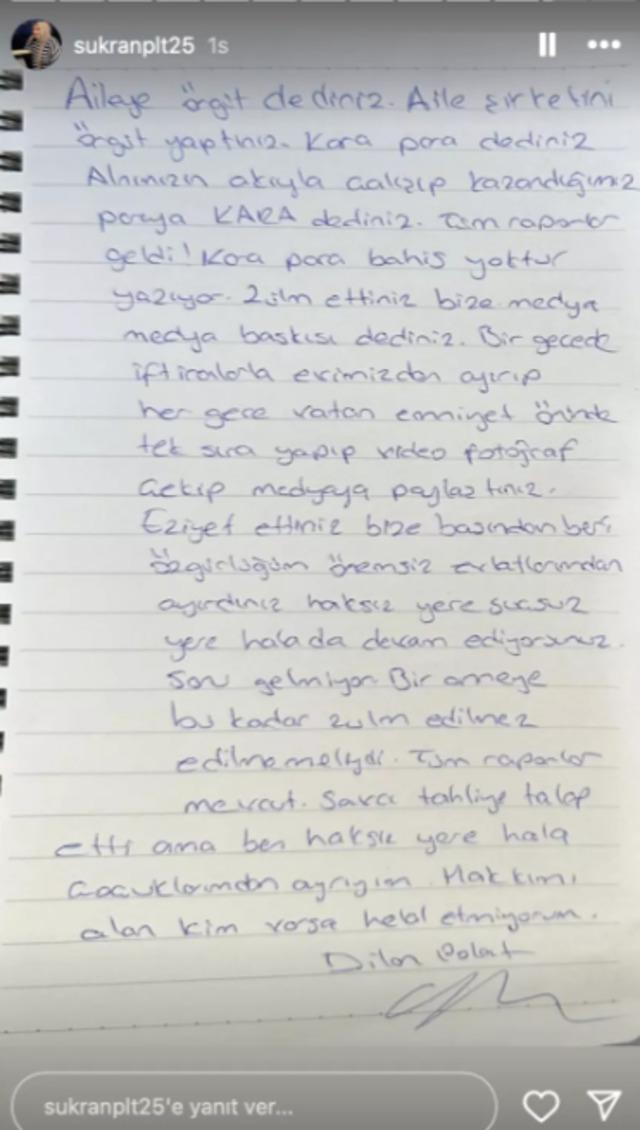 sukranplt25 1s
Aileye örgüt dediniz. Aile şirketini
örgüt yaptınız. Kara para dediniz
Alnımızın akıyla çalışıp kazandığımız
paraya KARA dediniz. Tüm raporlar
geldi! Kara para bahis yoktur
yazıyor. Zulm ettiniz bize medya
medya baskısı dediniz. Bir gecede
iftiralarla evimizden ayırıp
her gece vatan emniyet önünde
tek sıra yapıp video fotoğraf
çekip medyaya paylaştınız.
Eziyet ettiniz bize başından beri
özgürlüğüm önemsiz evlatlarımdan
ayırdınız haksız yere suçsuz
yere hala da devam ediyorsunuz.
Sonu gelmiyor. Bir anneye
bu kadar zulm edilmez
edilmemeliydi. Tüm raporlar
mevcut. Savcı tahliye talep
etti ama ben haksız yere hala
çocuklarımdan ayrıyım. Hakkımı
alan kim varsa helal etmiyorum.
Dilan Polat
sukranplt25'e yanıt ver...